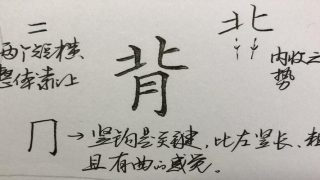 二
两个短横
整体靠上
背
北
内收之
势
冂→竖钩是关键,比左竖长、粗
且有曲的感觉。